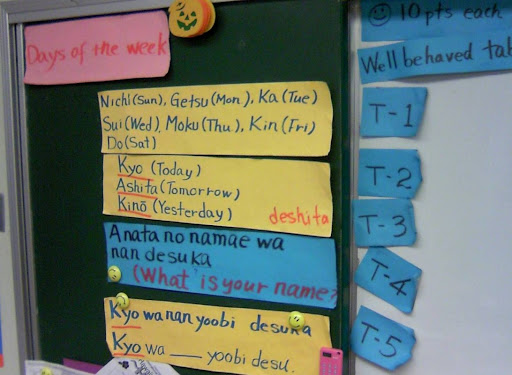 Days of the week
Nichi (Sun), Getsu (Mon), Ka (Tue)
Sui (Wed), Moku (Thu), Kin (Fri)
Do (Sat)
Kyo (Today)
Ashita (Tomorrow)
Kinō (Yesterday) deshita
Anata no namae wa
nan desuka
(What is your name?
Kyo wa nan yoobi desuka
Kyo wa ___ yoobi desu.
10 pts each
Well behaved tab
T-1
T-2
T-3
T-4
T-5